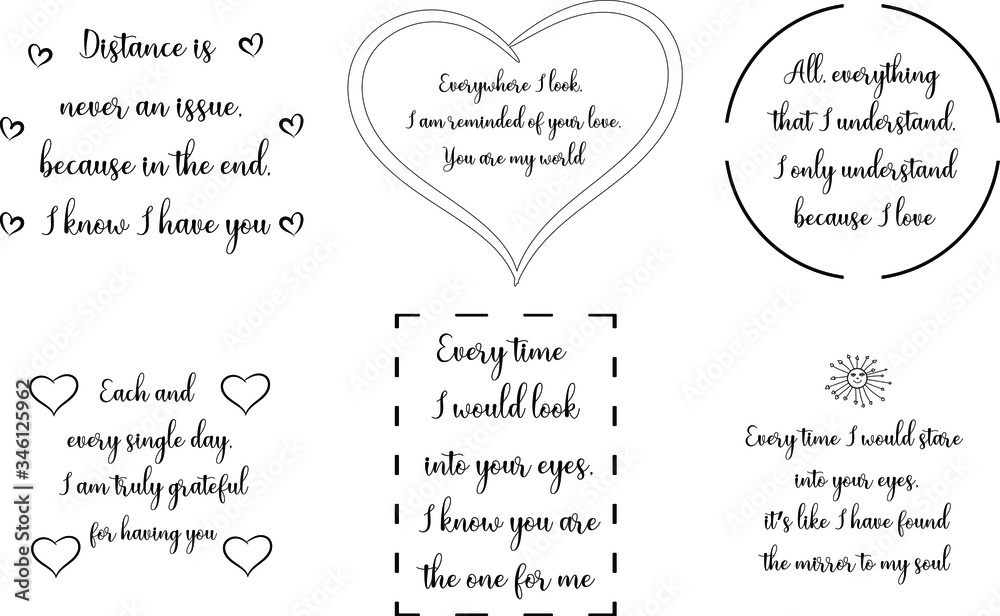 Distance is
never an issue,
because in the end,
I know I have you
Everywhere I look,
I am reminded of your love,
You are my world
All, everything
that I understand,
I only understand
because I love
Each and
every single day,
I am truly grateful
for having you
Every time
I would look
into your eyes,
I know you are
the one for me
Every time I would stare
into your eyes,
it's like I have found
the mirror to my soul
Adobe Stock | #346125962